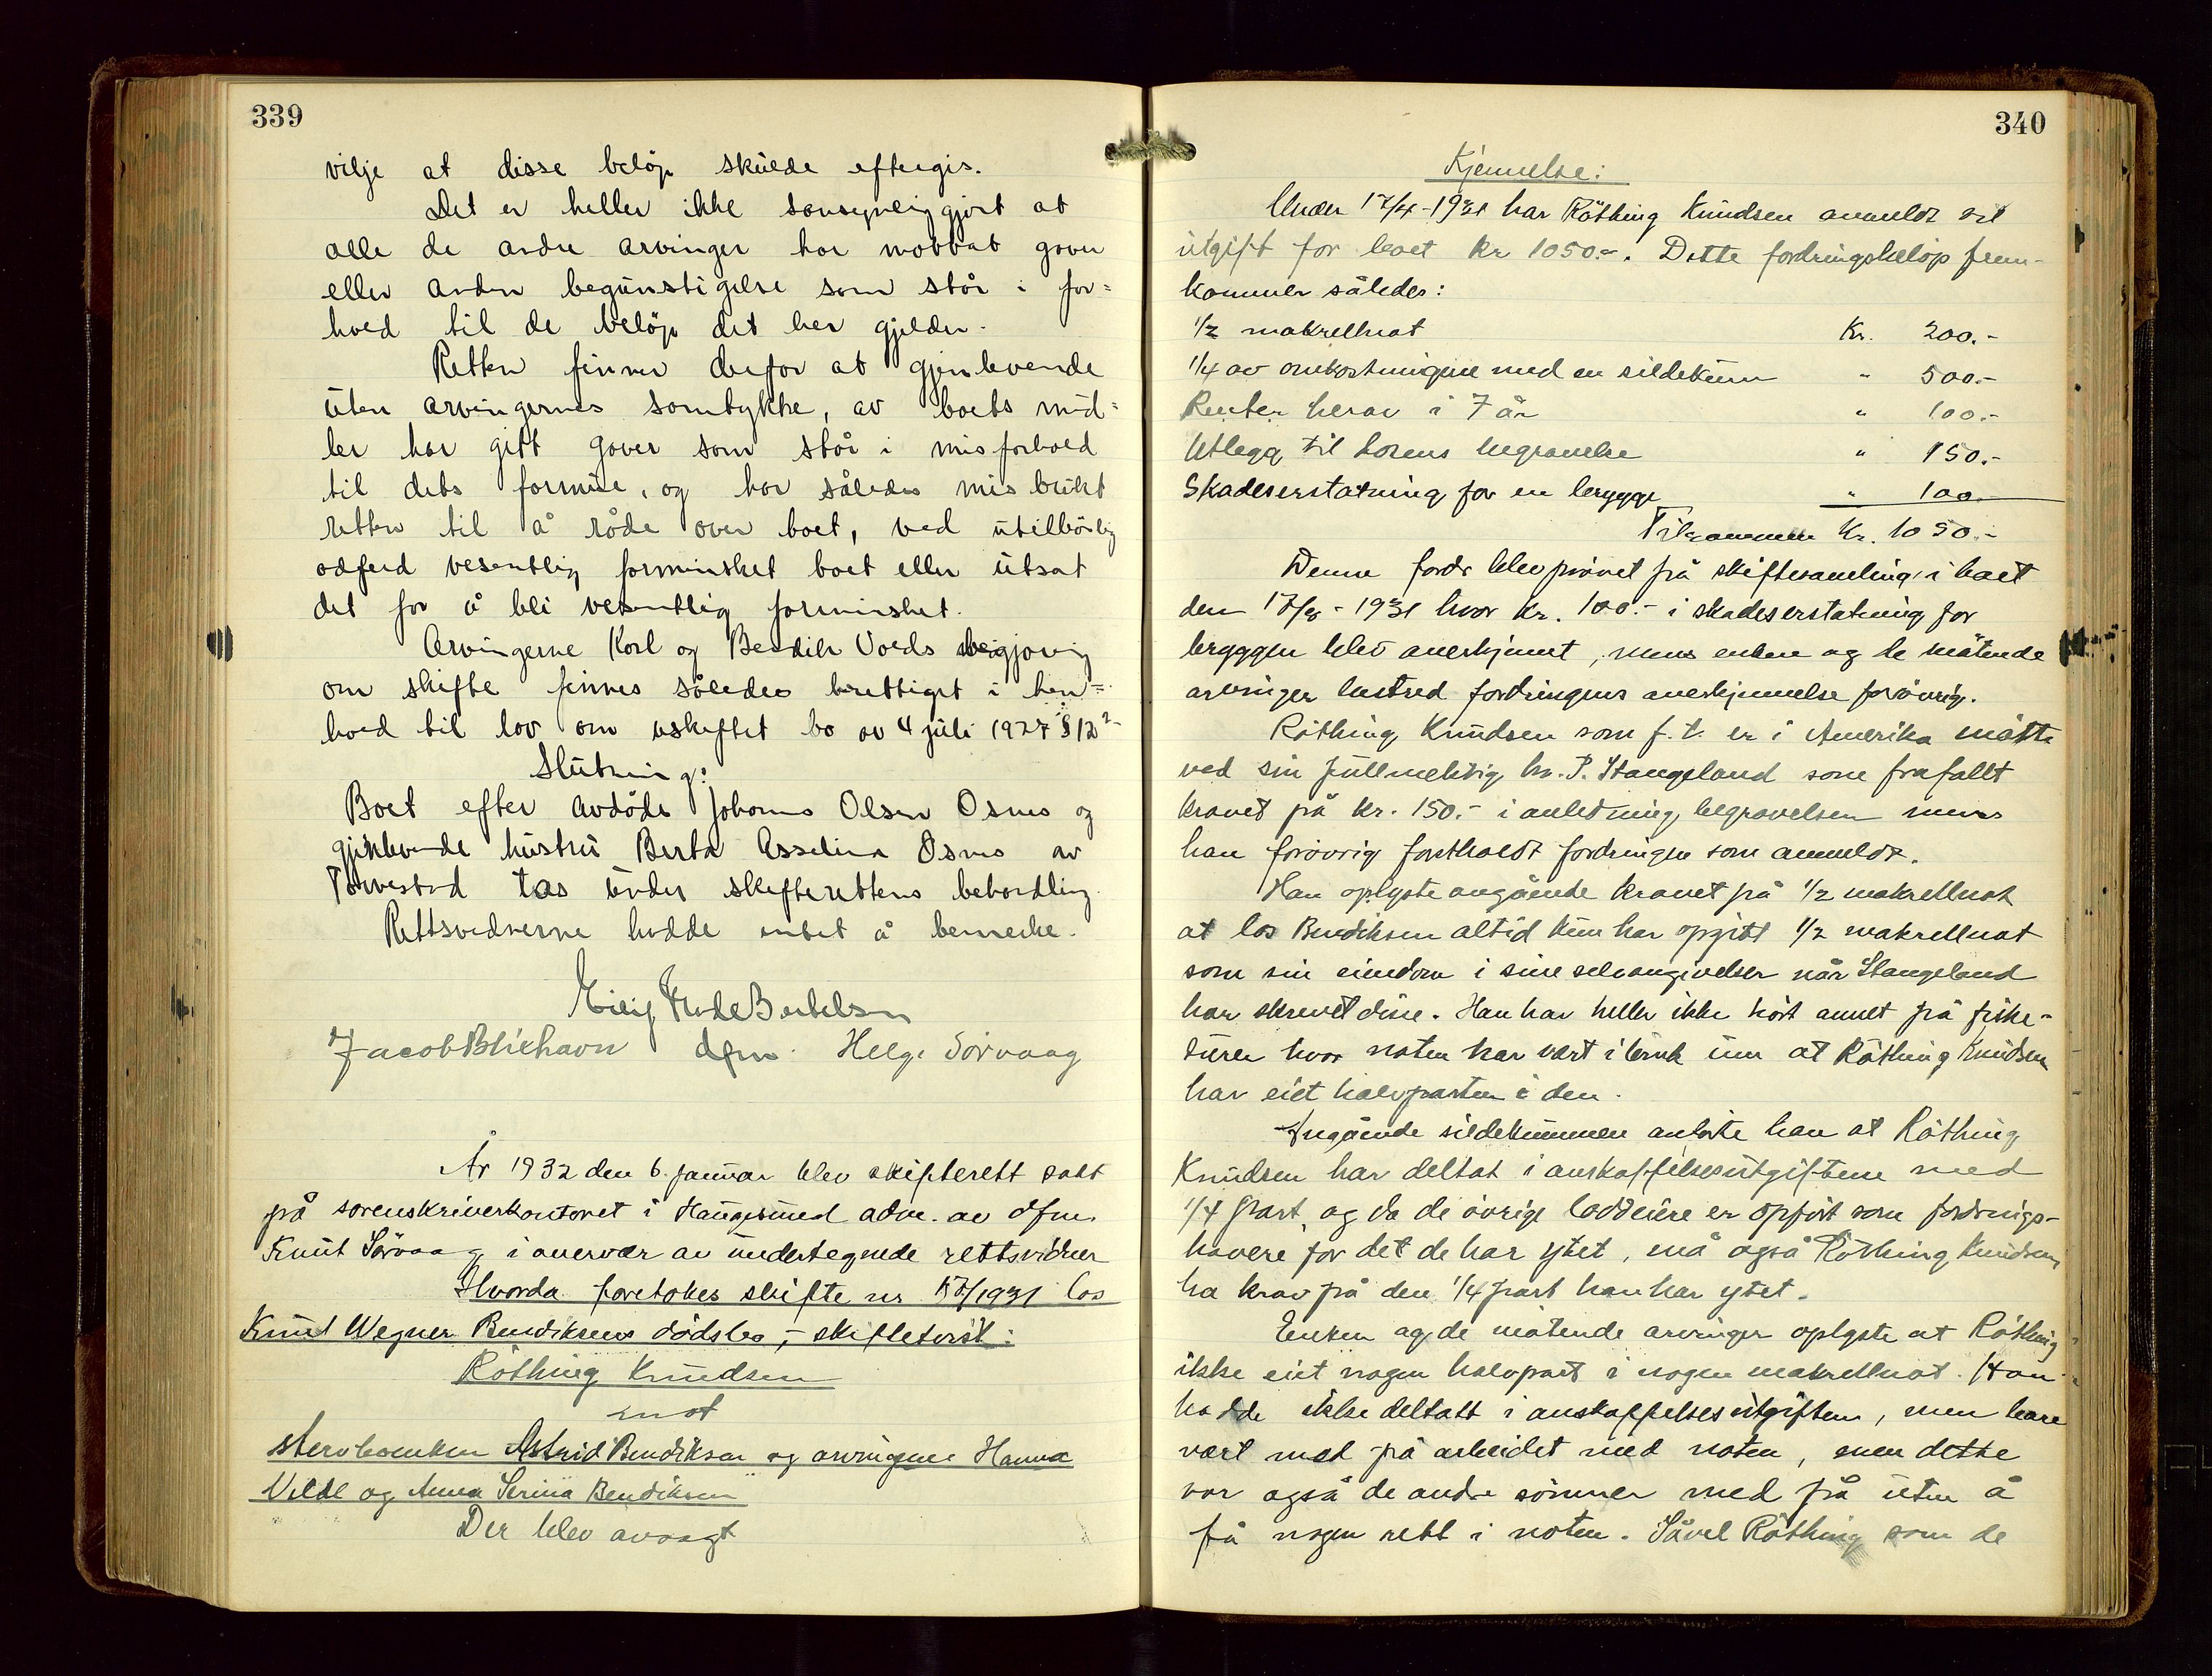 339
vilje at disse beløp skulde eftergis.
Det er heller ikke sansynliggjort at
alle de andre arvinger har mottat gaver
eller anden begunstigelse som står i for=
hold til de beløp det her gjelder.
Retten finner derfor at gjenlevende
uten arvingernes samtykke, av boets mid=
ler har gitt gaver som står i misforhold
til dets formue, og har således misbrukt
retten til å råde over boet, ved utilbørlig
adferd vesentlig forminsket boet eller utsat
det for å bli vesentlig forminsket.
Arvingerne Karl og Bendik Voeds begjæring
om skifte finnes således berettiget i hen=
hold til lov om uskiftet bo av 4 juli 1927 § 12
Slutning:
Boet efter avdøde Johannes Olsen Osnes og
gjenlevende hustru Berta Asseline Osnes av
Torvestad tas under skifterettens behandling.
Rettsvidnerne hadde intet å bemerke.
Eilif Bertelsen
Jacob Blixhavn dfm. Helge Sørvaag
År 1932 den 6. januar blev skifterett satt
på sorenskriverkontoret i Haugesund adm. av dfm.
Knut Sørvaag i overvær av undertegnede rettsvidner
Hvorda foretokes skifte nr 17/1931 los
Knut Wegner Bendiksens dødsbo, - skiftetvist:
Røthing Knudsen
mot
stervboenken Astrid Bendiksen og arvingene Hanna
Velde og Anna Serina Bendiksen
Der blev avsagt
340
Kjennelse:
Under 17/4-1931 har Røthing Knudsen anmeldt sit
utgift for boet kr 1050.-. Dette fordringsbeløp frem-
kommer således:
1/2 makrellnot Kr. 200.-
1/4 av omkostningene med en sildekum " 500.-
Renter herav i 7 år " 100.-
Utlegg til losens begravelse " 150.-
Skadeserstatning for en brygge " 100.-
Tilsammen Kr. 1050.-
Denne fordr. blev prøvet på skiftesamling i boet
den 17/8-1931 hvor kr. 100.- i skadeserstatning for
bryggen blev anerkjennt, mens enken og de møtende
arvinger bestred fordringens anerkjennelse forøvrig.
Røthing Knudsen som f.t. er i Amerika møtte
ved sin fullmektig hr. P. Stangeland som frafallt
kravet på kr. 150.- i anledning begravelsen mens
han forøvrig fastholdt fordringen som anmeldt.
Han oplyste angående kravet på 1/2 makrellnot
at los Bendiksen altid kun har opgitt 1/2 makrellnot
som sin eiendom i sine selvangivelser når Stangeland
har skrevet disse. Han har heller ikke hørt annet på fiske-
turer hvor noten har vært i bruk enn at Røthing Knudsen
har eiet halvparten i den.
Angående sildekummen anførte han at Røthing
Knudsen har deltat i anskaffelsesutgiftene med
1/4 part, og da de øvrige loddeiere er opført som fordrings-
havere for det de har ytet, må også Røthing Knudsen
ha krav på den 1/4 part han har ytet.
Enken og de møtende arvinger oplyste at Røthing
ikke eiet nogen halvpart i nogen makrellnot. Han
hadde ikke deltatt i anskaffelsesutgiftene, men bare
vært med på arbeidet med noten, men dette
var også de andre sønner med på uten å
få nogen rett i noten. Såvel Røthing som de